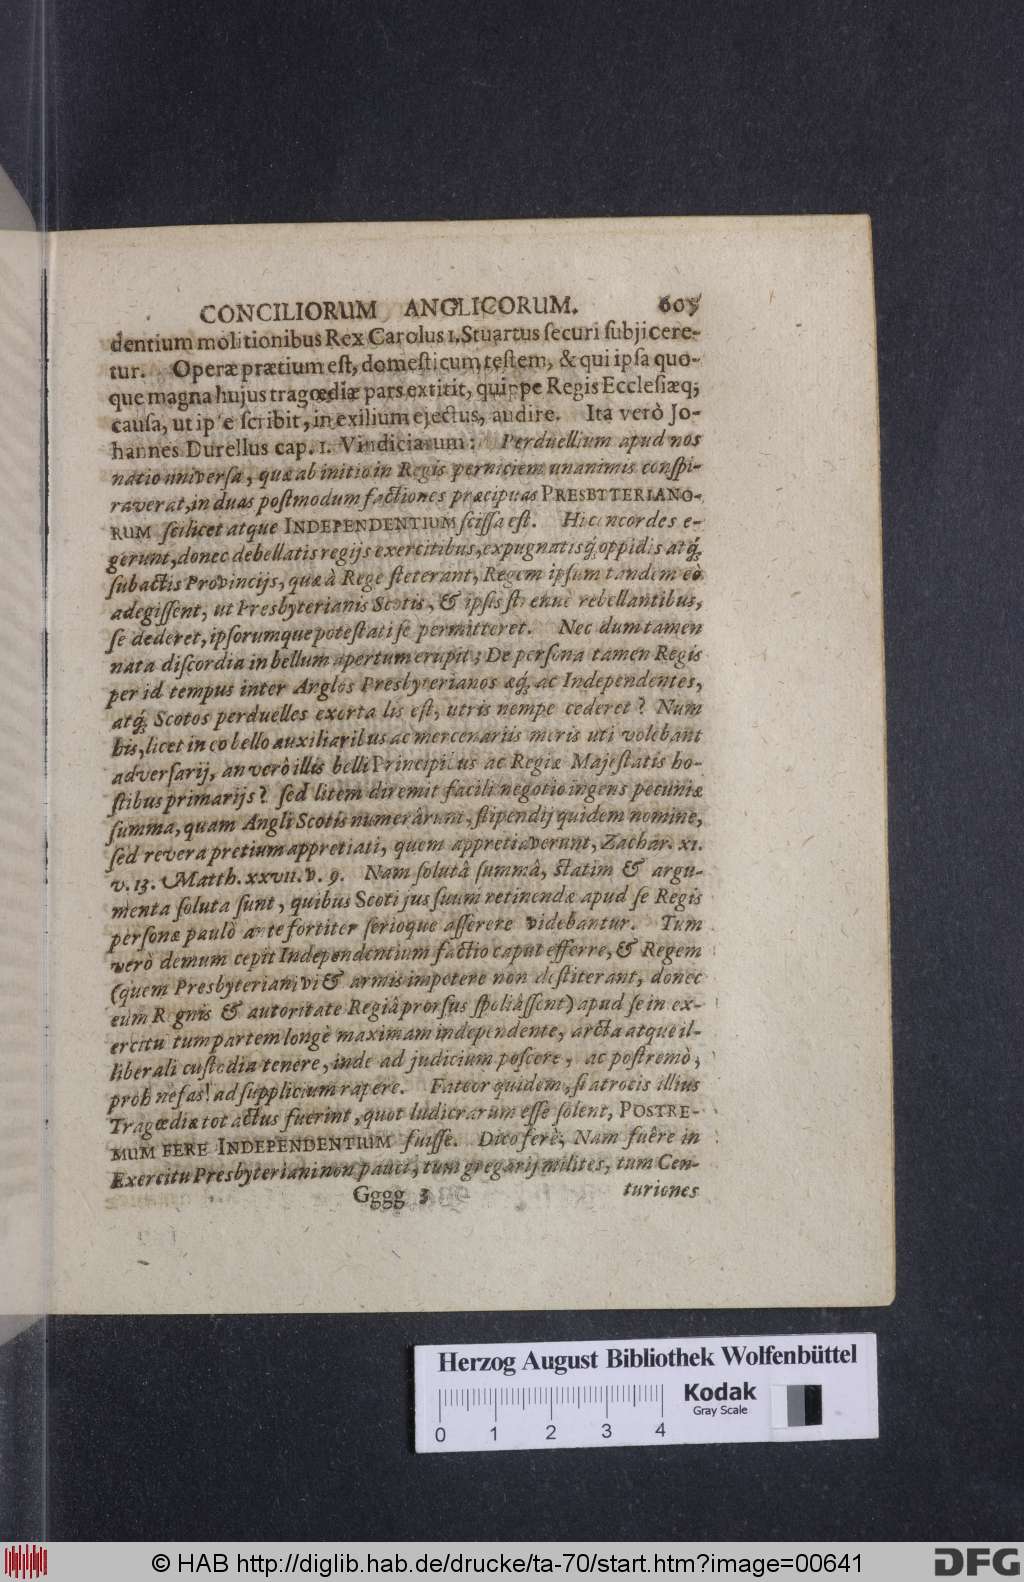 CONCILIORUM ANGLICORUM. 605
dentium molitionibus Rex Carolus 1. Stuartus ſecuri ſubjicere-
tur. Operæ prætium eſt, domeſticum teſtem, & qui ipſa quo-
que magna hujus tragœdiæ pars extitit, quippe Regis Eccleſiæq;
cauſa, ut ipſe ſcribit, in exilium ejectus, audire. Ita verò Jo-
hannes Durellus cap. 1. Vindiciarum: Perduellium apud nos
natio univerſa, quæ ab initio in Regis perniciem unanimis conſpi-
raverat, in duas poſtmodum factiones præcipuas PRESBTTERIANO-
RUM ſcilicet atque INDEPENDENTIUM ſciſſa eſt. Hi concordes e-
gerunt, donec debellatis regijs exercitibus, expugnatisq́; oppidis atq́;
ſubactis Provincijs, quæ à Rege ſteterant, Regem ipſum tandem eò
adegiſſent, ut Presbyterianis Scotis, & ipſis ſtrenuè rebellantibus,
ſe dederet, ipſorumque poteſtati ſe permitteret. Nec dum tamen
nata diſcordia in bellum apertum erupit; De perſona tamen Regis
per id tempus inter Anglos Presbyterianos æq́; ac Independentes,
atq́; Scotos perduelles exorta lis eſt, utris nempe cederet? Num
his, licet in eo bello auxiliaribus ac mercenariis meris uti volebant
adverſarij, an verò illis belli Principibus ac Regiæ Majeſtatis ho-
ſtibus primarijs? ſed litem diremit facili negotio ingens pecuniæ
ſumma, quam Angli Scotis numerârunt, ſtipendij quidem nomine,
ſed revera pretium appretiati, quem appretiaverunt, Zachar. XI.
v. 13. Matth. XXVII. v. 9. Nam ſolutâ ſummâ, ſtatim & argu-
menta ſoluta ſunt, quibus Scoti jus ſuum retinendæ apud ſe Regis
perſonæ paulò ante fortiter ſerioque aſſerere videbantur. Tum
verò demum cepit Independentium factio caput efferre, & Regem
(quem Presbyteriani vi & armis impetere non deſtiterant, donec
eum R gnis & autoritate Regiâ prorſus ſpoliâſſent) apud ſe in ex-
ercitu tum partem longè maximam independente, arcta atque il-
liberali cuſtodia tenere, inde ad judicium poſcere, ac poſtremò,
proh nefas! ad ſupplicium rapere. Fateor quidem, ſi atrocis illius
Tragœdiæ tot actus fuerint, quot ludicrarum eſſe ſolent, POSTRE-
MUM FERE INDEPENDENTIUM fuiſſe. Dico ferè; Nam fuêre in
Exercitu Presbyteriani non pauci, tum gregarij milites, tum Cen-
Gggg 3 turiones
Herzog August Bibliothek Wolfenbüttel
Kodak
Gray Scale
0 1 2 3 4
© HAB http://diglib.hab.de/drucke/ta-70/start.htm?image=00641
DFG